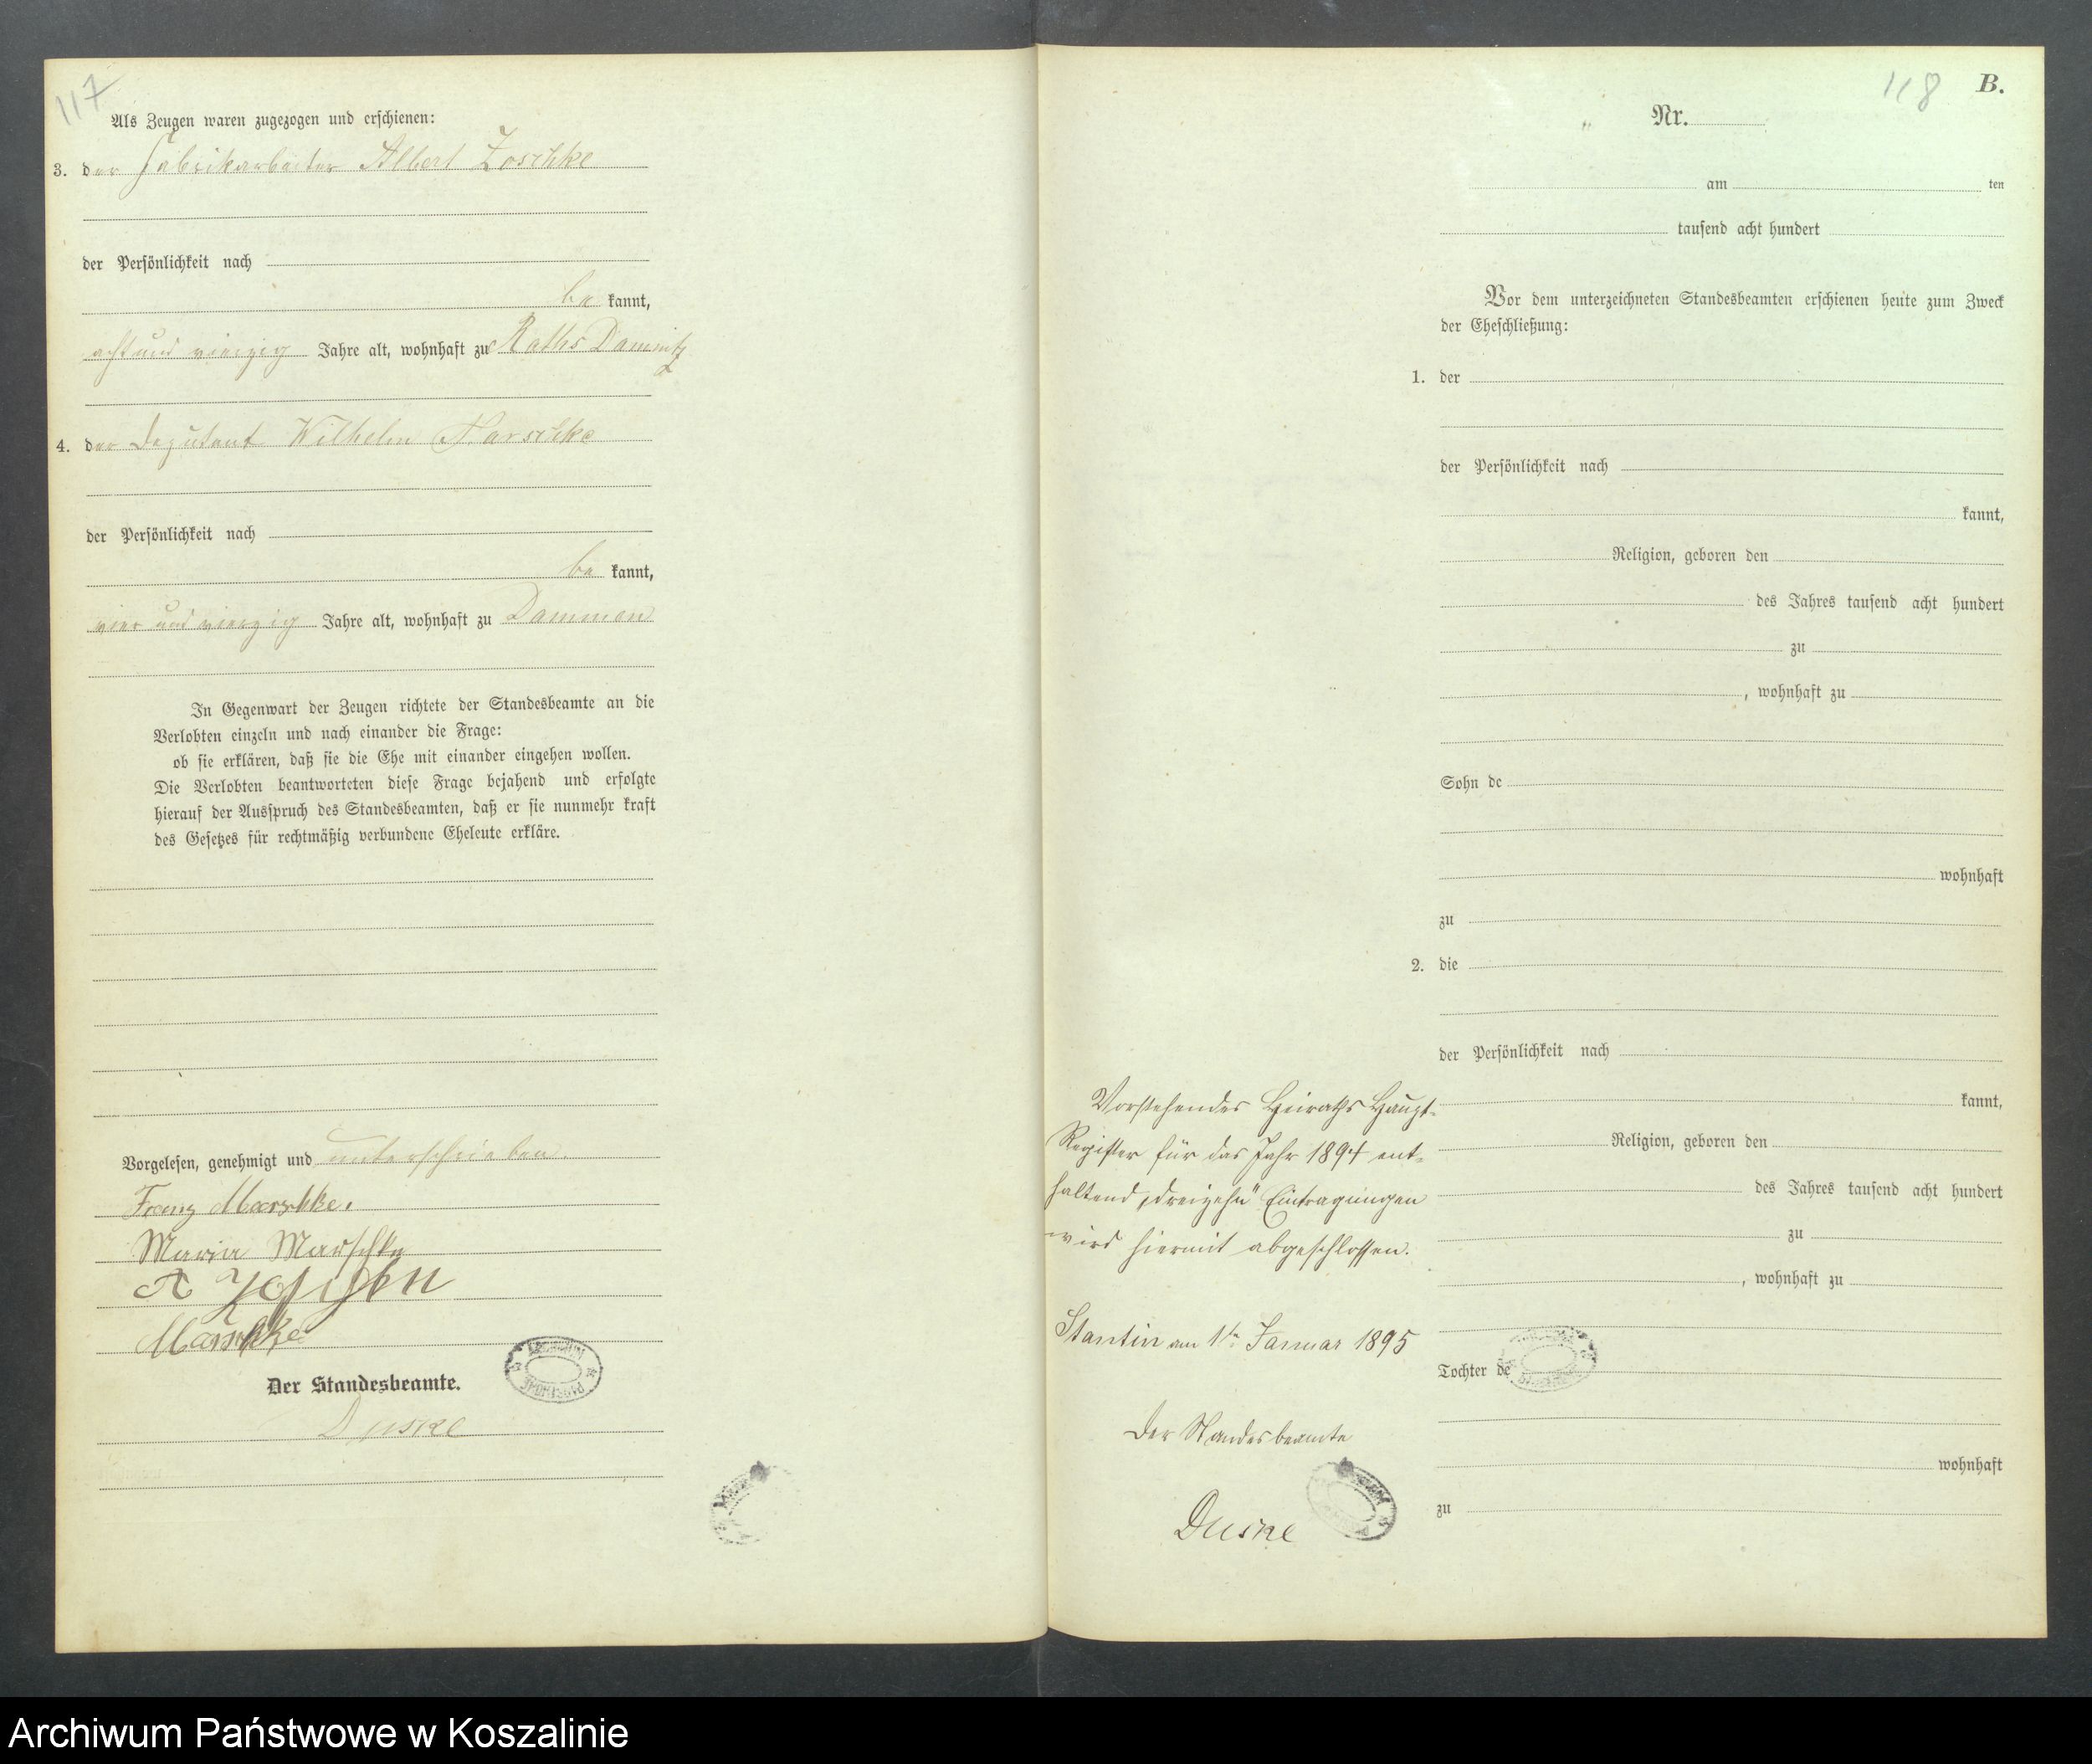 117
Als Zeugen waren zugezogen und erschienen:
3. der Fabrikarbeiter Albert Zoschke
der Persönlichkeit nach
be kannt,
acht und vierzig Jahre alt, wohnhaft zu Raths Damnitz
4. der Deputant Wilhelm Marschke
der Persönlichkeit nach
be kannt,
vier und vierzig Jahre alt, wohnhaft zu Dammen
In Gegenwart der Zeugen richtete der Standesbeamte an die
Verlobten einzeln und nach einander die Frage:
ob sie erklären, daß sie die Ehe mit einander eingehen wollen.
Die Verlobten beantworteten diese Frage bejahend und erfolgte
hierauf der Ausspruch des Standesbeamten, daß er sie nunmehr kraft
des Gesetzes für rechtmäßig verbundene Eheleute erkläre.
Vorgelesen, genehmigt und unterschrieben
Franz Marschke.
Maria Marschke
A
Marschke
Der Standesbeamte.
Duske
118 B.
Nr.
am ten
tausend acht hundert
Vor dem unterzeichneten Standesbeamten erschienen heute zum Zweck
der Eheschließung:
1. der
der Persönlichkeit nach
kannt,
Religion, geboren den
des Jahres tausend acht hundert
zu
, wohnhaft zu
Sohn de
wohnhaft
zu
2. die
der Persönlichkeit nach
kannt,
Religion, geboren den
des Jahres tausend acht hundert
zu
, wohnhaft zu
Tochter de
wohnhaft
zu
Vorstehendes Heiraths Haupt-
Register für das Jahr 1894 ent-
haltend „dreizehn" Eintragungen
wird hiermit abgeschlossen.
Stantin am 1ten Januar 1895
Der Standesbeamte
Duske
Archiwum Państwowe w Koszalinie